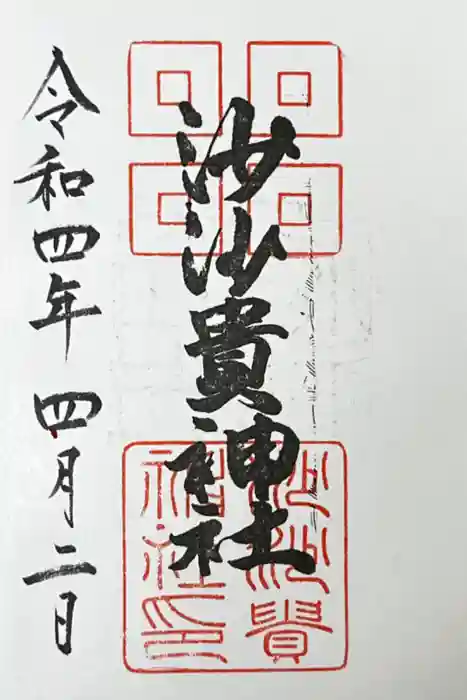 沙沙貴神社
令和四年四月二日
沙沙貴
神社印